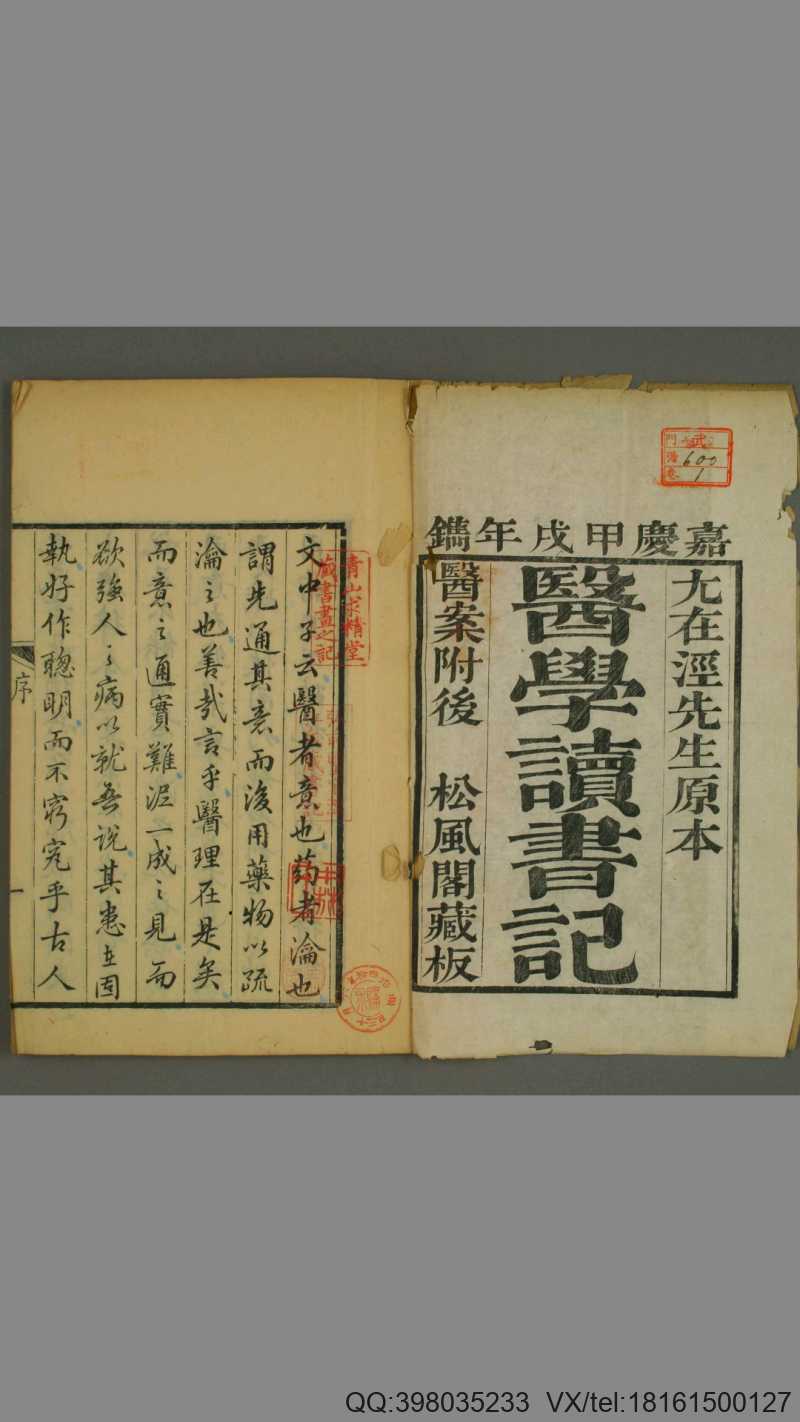 嘉慶甲戌年鐫
尤在涇先生原本
醫學讀書記
醫案附後 松風閣藏板
600
1
文中子云醫者意也葯者瀹也
謂先通其意而後用藥物以疏
瀹之也善哉言乎醫理在是矣
而意之通實難泥一成之見而
欲強人之病以就吾說其患在固
執好作聰明而不窮究乎古人
序
一
青山求精堂
藏書畫之記
QQ:398035233 VX/tel:18161500127